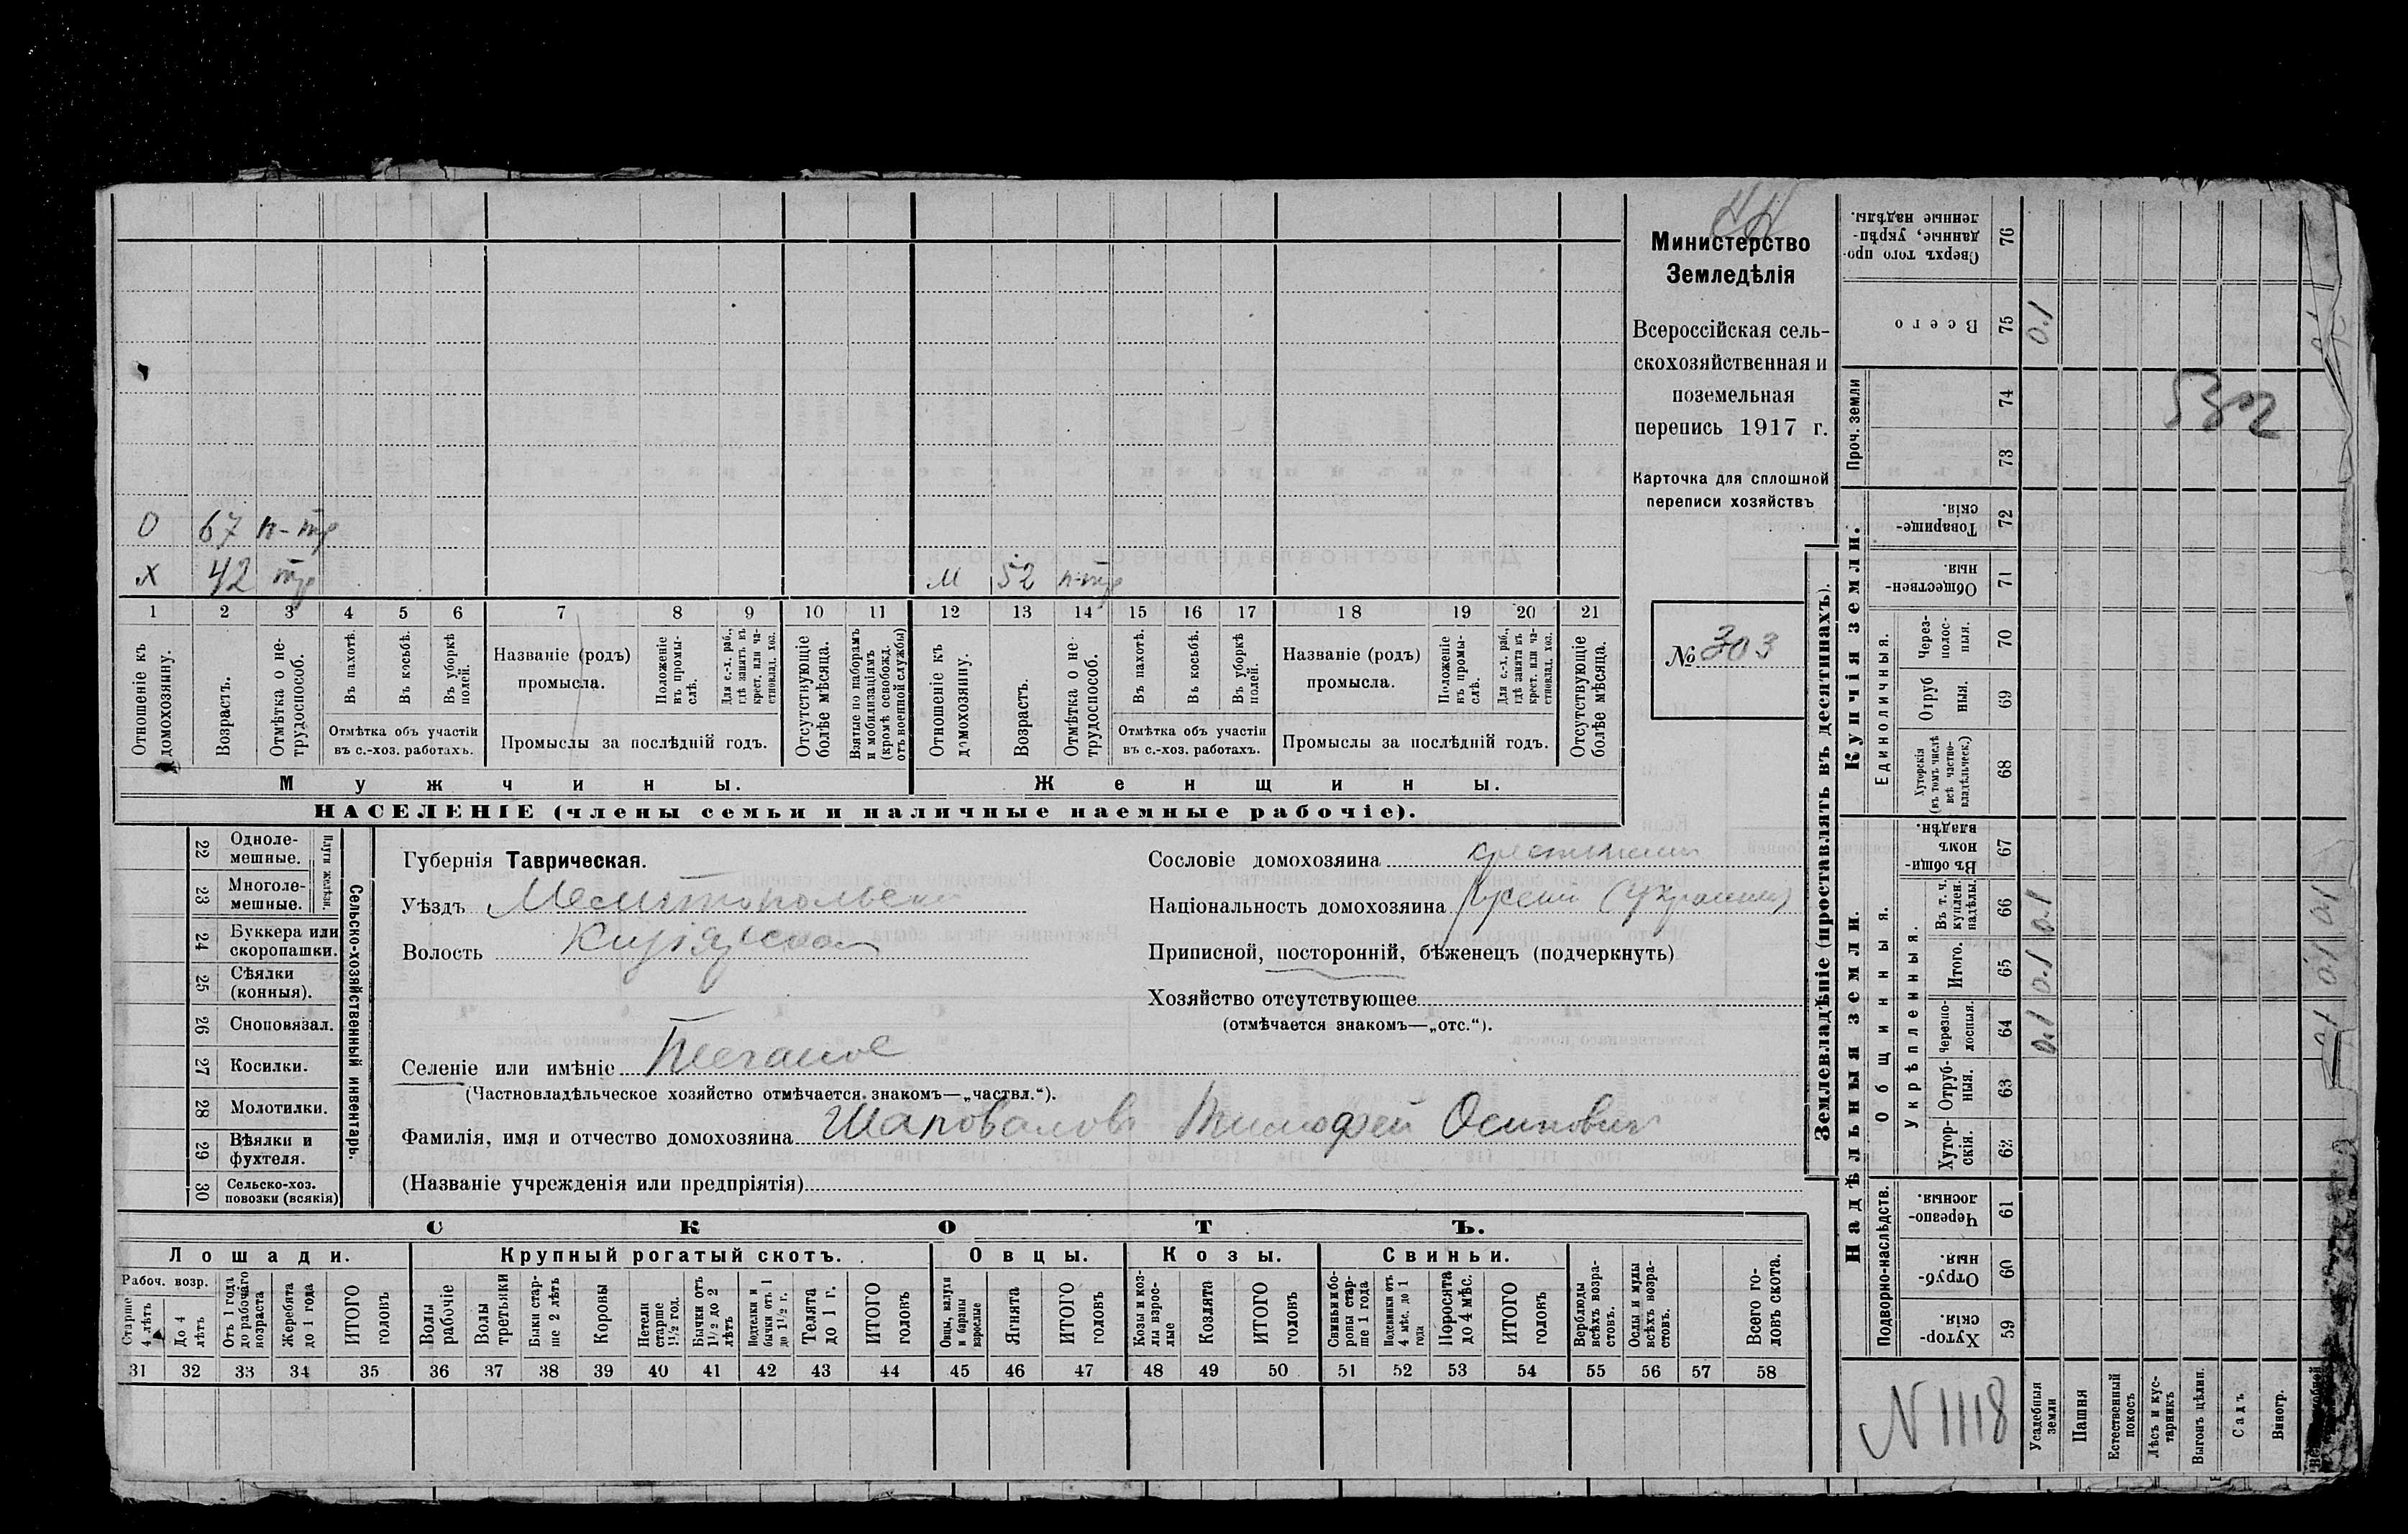 Министерство
Земледѣлія
Всероссійская сель-
скохозяйственная и
поземельная
перепись 1917 г.
Карточка для сплошной
переписи хозяйствъ
№ 303
О 67 н-тр
Х 42 тр
М 52 н-тр
1 2 3 4 5 6 7 8 9 10 11 12 13 14 15 16 17 18 19 20 21
Отношеніе къ домохозяину.
Возрастъ.
Отмѣтка о не-трудоспособ.
Въ пахотѣ.
Въ косьбѣ.
Въ уборкѣ полей.
Отмѣтка объ участіи
въ с.-хоз. работахъ.
Названіе (родъ)
промысла.
Положеніе въ промы-слѣ.
Для с.-х. раб., гдѣ занятъ въ крест. или ча-стновлад. хоз.
Промыслы за послѣдній годъ.
Отсутствующіе болѣе мѣсяца.
Взятые по наборамъ и мобилизаціямъ (кромѣ освобожд. отъ военной службы)
Отношеніе къ домохозяину.
Возрастъ.
Отмѣтка о не-трудоспособ.
Въ пахотѣ.
Въ косьбѣ.
Въ уборкѣ полей.
Отмѣтка объ участіи
въ с.-хоз. работахъ.
Названіе (родъ)
промысла.
Положеніе въ промы-слѣ.
Для с.-х. раб., гдѣ занята въ крест. или ча-стновлад. хоз.
Промыслы за послѣдній годъ.
Отсутствующіе болѣе мѣсяца.
Мужчины.
Женщины.
НАСЕЛЕНІЕ (члены семьи и наличные наемные рабочіе).
22 Одноле-мешные.
23 Многоле-мешные.
Плуги желѣзн.
24 Буккера или скоропашки.
25 Сѣялки (конныя).
26 Сноповязал.
27 Косилки.
28 Молотилки.
29 Вѣялки и фухтеля.
30 Сельско-хоз. повозки (всякія)
Сельско-хозяйственный инвентарь.
Губернія Таврическая.
Уѣздъ
Волость
Селеніе или имѣніе
(Частновладѣльческое хозяйство отмѣчается знакомъ—„частвл.“).
Фамилія, имя и отчество домохозяина Шаповаловъ Тимофей Осиповичъ
(Названіе учрежденія или предпріятія)
Сословіе домохозяина
Національность домохозяина
Приписной, посторонній, бѣженецъ (подчеркнуть)
Хозяйство отсутствующее
(отмѣчается знакомъ—„отс.“).
СКОТЪ.
Лошади.
Крупный рогатый скотъ.
Овцы.
Козы.
Свиньи.
Рабоч. возр.
Старше 4 лѣтъ
До 4 лѣтъ
Отъ 1 года до рабочаго возраста
Жеребята до 1 года
ИТОГО головъ
Волы рабочіе
Волы третьяки
Быки стар-ше 2 лѣтъ
Коровы
Нетели старше 1½ год.
Бычки отъ 1½ до 2 лѣтъ
Подтелки и бычки отъ 1 до 1½ г.
Телята до 1 г.
ИТОГО головъ
Овцы, валухи и бараны взрослые
Ягнята
ИТОГО головъ
Козы и коз-лы взрос-лые
Козлята
ИТОГО головъ
Свиньи и бо-ровы стар-ше 1 года
Подсвинки отъ 4 мѣс. до 1 года
Поросята до 4 мѣс.
ИТОГО головъ
Верблюды всѣхъ возра-стовъ.
Ослы и мулы всѣхъ возра-стовъ.
Всего го-ловъ скота.
31 32 33 34 35 36 37 38 39 40 41 42 43 44 45 46 47 48 49 50 51 52 53 54 55 56 57 58
Землевладѣніе (проставлять въ десятинахъ).
Надѣльныя земли.
Купчія земли.
Проч. земли
Подворно-наслѣдств.
Общинныя.
Укрѣпленныя.
Единоличныя.
Сверхъ того про-данные, укрѣп-ленные надѣлы. 76
Всего 75 0.1
74
73
Товарище-скія. 72
Обществен-ныя. 71
Через-полос-ныя. 70
Отруб ныя. 69
Хуторскія (въ томъ числѣ всѣ частно-владѣльческ.) 68
Въ общин-номъ владѣн. 67
Въ т. ч. куплен. надѣлы. 66 0.1
Итого. 65 0.1
Черезпо-лосныя. 64 0.1
Отруб-ныя. 63
Хутор-скія. 62
Черезпо-лосныя. 61
Отруб-ныя. 60
Хутор-скія. 59
Усадебныя земли
Пашня
Естественный покосъ
Лѣсъ и кус-тарникъ
Выгонъ цѣлин.
Садъ
Виногр.
N 1118
532